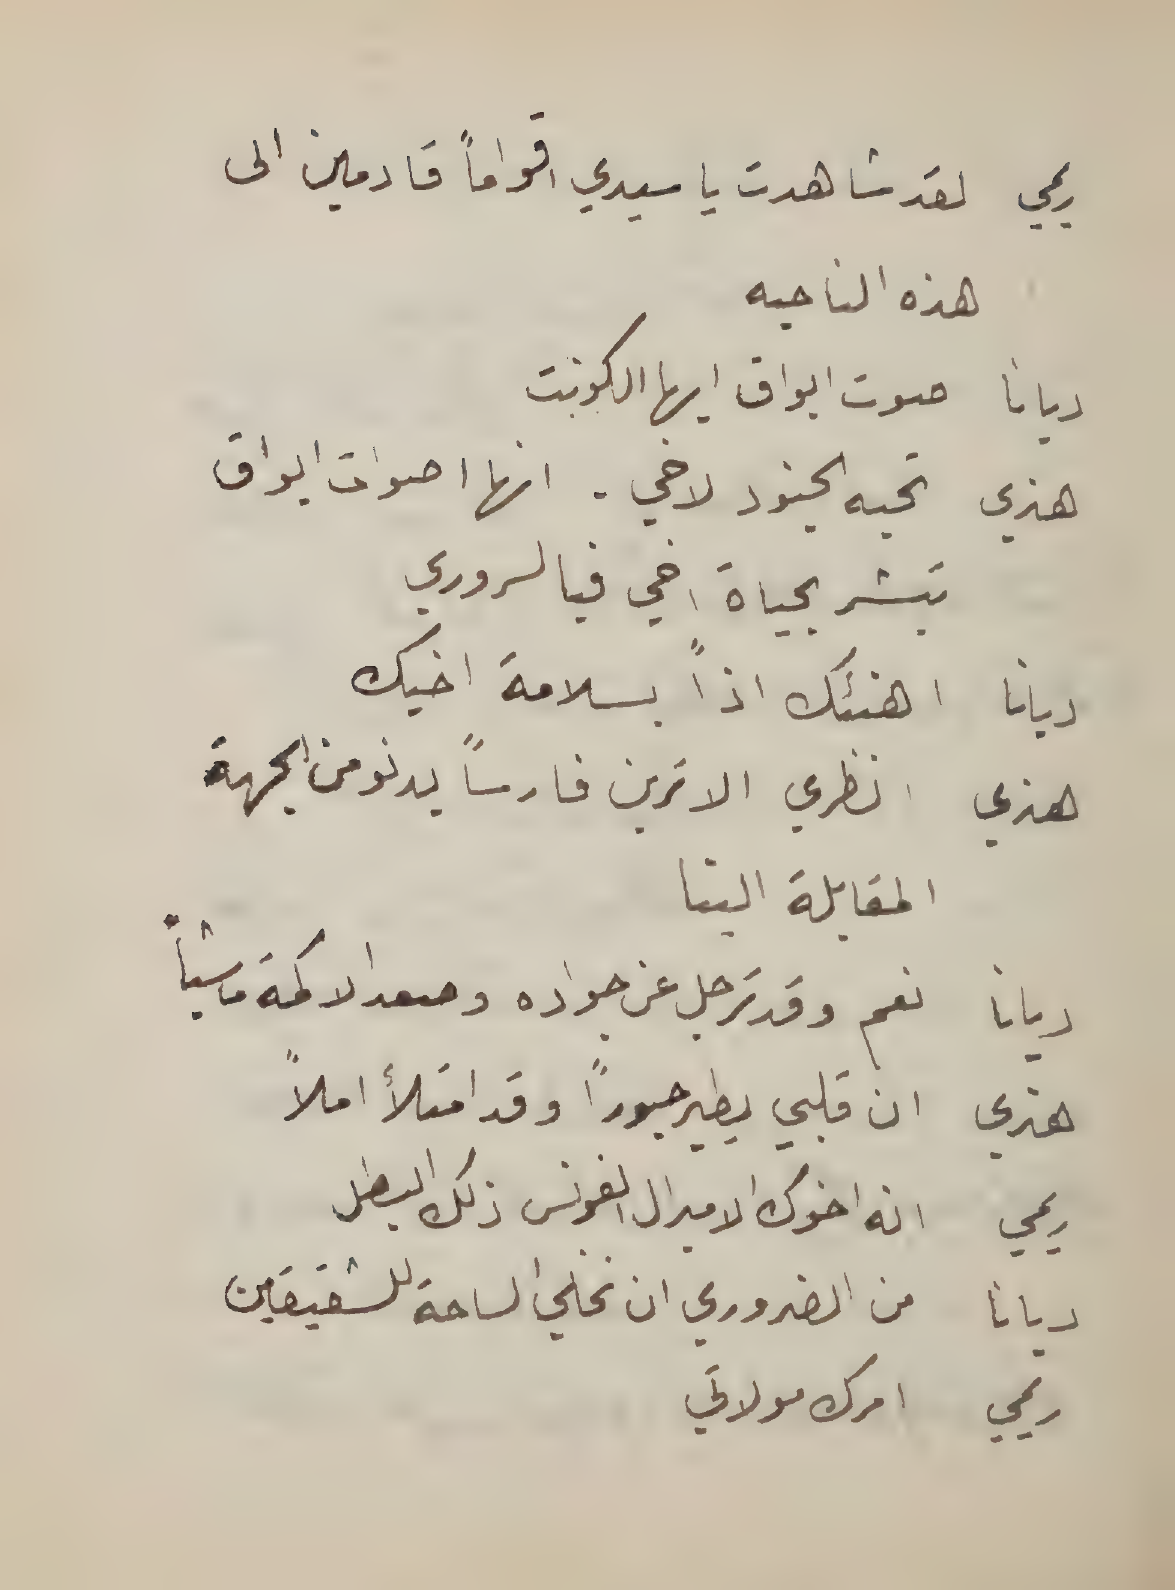 ريمي لقد شاهدت يا سيدي اقواماً قادمين الى
هذه الناحيه
ديانا صوت ابواق ايها الكونت
هنري تحيه الجنود لاخي . انها اصوات ابواق
تبشر بحياة اخي فيا لسروري
ديانا اهنئك اذاً بسلامة اخيك
هنري انظري الا ترين فارساً يدنو من الجهة
المقابلة الينا
ديانا نعم وقد ترجل عن جواده وصعد الاكمة ماشياً
هنري ان قلبي يطير حبوراً وقد امتلأ املاً
ريمي انه اخوك الاميرال الفونس ذلك البطل
ديانا من الضروري ان نخلي الساحة للشقيقين
ريمي امرك مولاتي